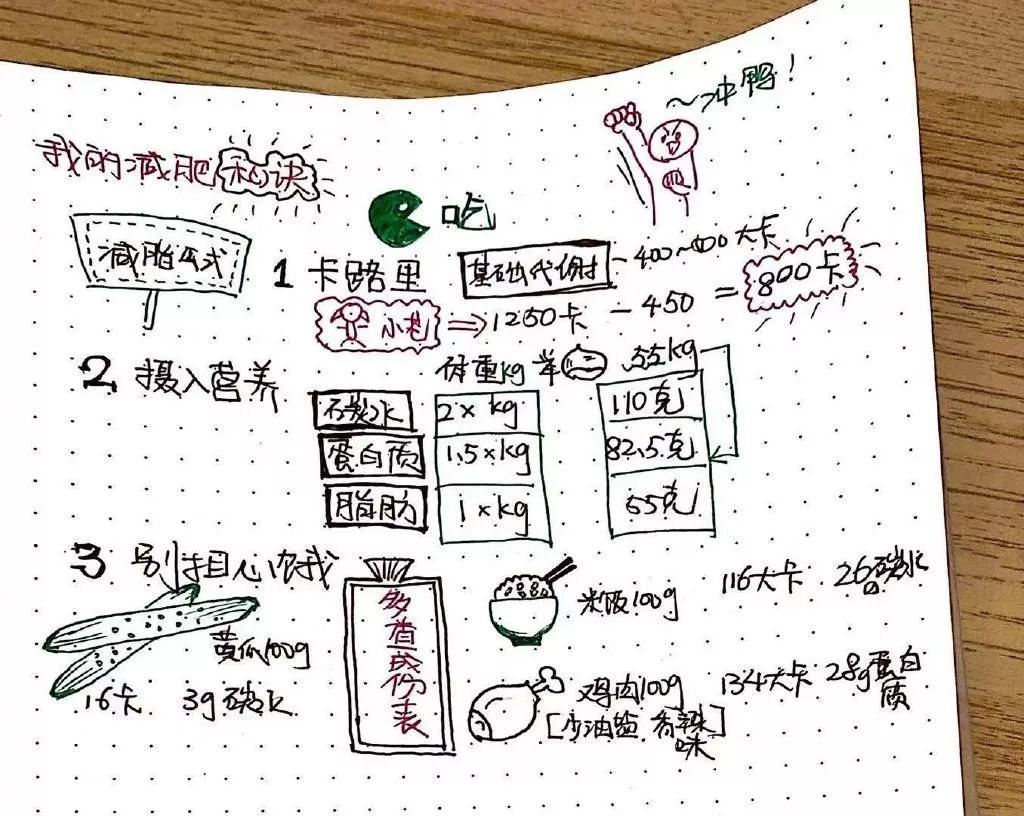 ~冲鸭!
我的减肥秘诀
吃
减脂公式
1 卡路里 基础代谢 - 400~500大卡
小艺 ⇒ 1250卡 - 450 = 800卡
2 摄入营养 体重kg 举 55kg
碳水 2×kg 110克
蛋白质 1.5×kg 82.5克
脂肪 1×kg 55克
3 别担心饿我
多查成份表
米饭100g 116大卡 26g碳水
黄瓜100g
16卡 3g碳水
鸡肉100g 134大卡 28g蛋白质
[少油盐 香辣味]